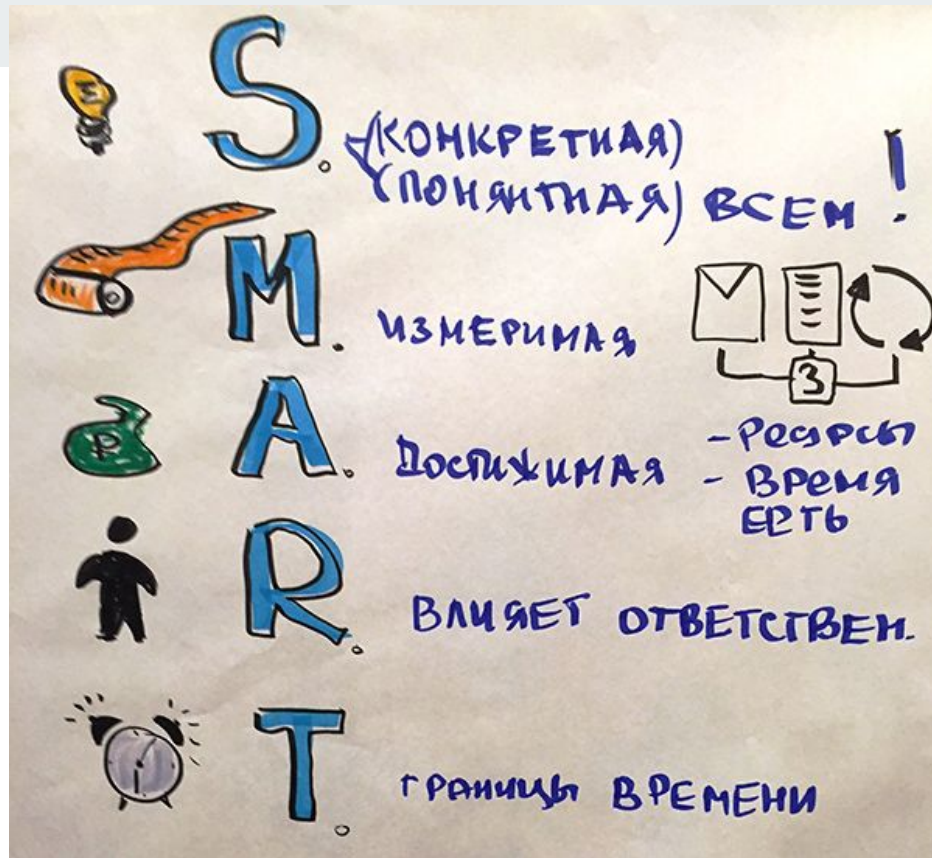 S. (КОНКРЕТНАЯ)
(ПОНЯТНАЯ) ВСЕМ !
M. ИЗМЕРИМАЯ
3
₽ A. ДОСТИЖИМАЯ - РЕСУРСЫ
- ВРЕМЯ
ЕСТЬ
R. ВЛИЯЕТ ОТВЕТСТВЕН.
T. ГРАНИЦЫ ВРЕМЕНИ